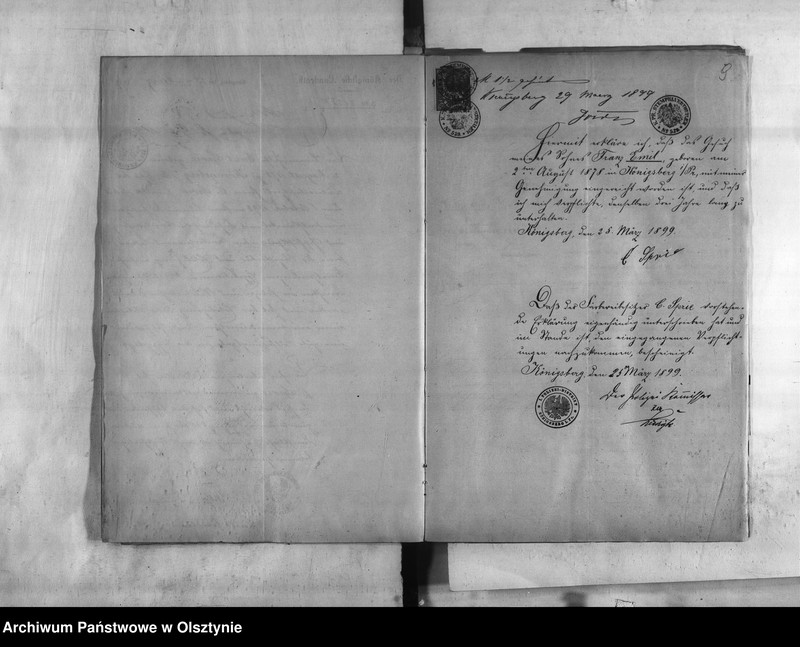 9
Koenigsberg 29 Maerz 1899
Hiermit erkläre ich, daß das Gesuch
meines Sohnes Franz Emil, geboren am
2ten August 1878 in Königsberg i/Pr., mit meiner
Genehmigung eingereicht worden ist, und daß
ich mich verpflichte, denselben drei Jahre lang zu
unterhalten.
Königsberg, den 25. März 1899.
C Sprie
Daß der C. Sprie vorstehen-
de Erklärung eigenhändig unterschrieben hat und
im Stande ist, den eingegangenen Verpflicht-
ungen nachzukommen, bescheinigt.
Königsberg, den 25 März 1899.
Der Polizei Kommissar
Archiwum Państwowe w Olsztynie